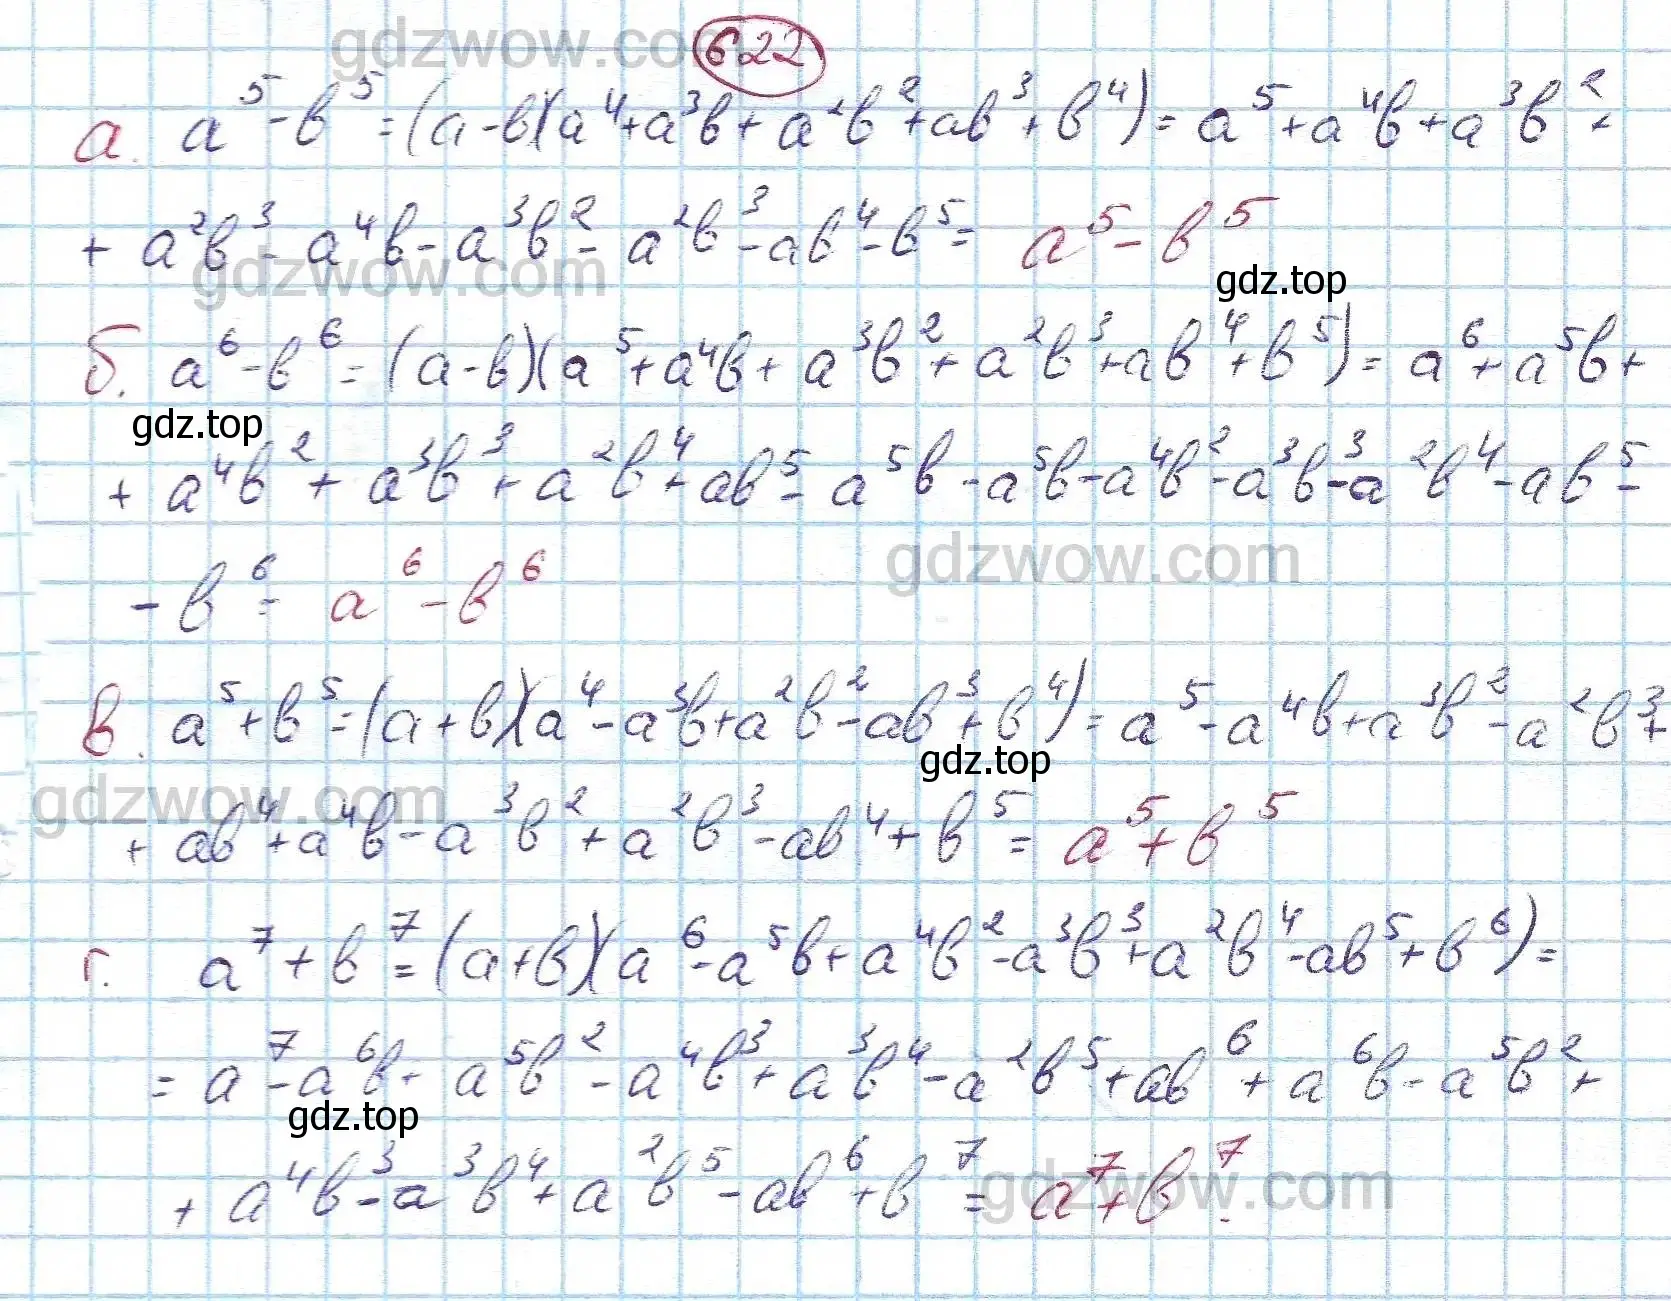 gdzwow.com
622
а. a⁵-b⁵=(a-b)(a⁴+a³b+a²b²+ab³+b⁴)=a⁵+a⁴b+a³b²+
+a²b³-a⁴b-a³b²-a²b³-ab⁴-b⁵= a⁵-b⁵
gdzwow.com
gdz.top
б. a⁶-b⁶=(a-b)(a⁵+a⁴b+a³b²+a²b³+ab⁴+b⁵)=a⁶+a⁵b+
gdz.top
+a⁴b²+a³b³+a²b⁴+ab⁵-a⁵b-a⁵b-a⁴b²-a³b³-a²b⁴-ab⁵-
gdzwow.com
-b⁶= a⁶-b⁶
в. a⁵+b⁵=(a+b)(a⁴-a³b+a²b²-ab³+b⁴)=a⁵-a⁴b+a³b²-a²b³+
gdz.top
gdzwow.com
+ab⁴+a⁴b-a³b²+a²b³-ab⁴+b⁵= a⁵+b⁵
г. a⁷+b⁷=(a+b)(a⁶-a⁵b+a⁴b²-a³b³+a²b⁴-ab⁵+b⁶)=
=a⁷-a⁶b+a⁵b²-a⁴b³+a³b⁴-a²b⁵+ab⁶+a⁶b-a⁵b²+
gdz.top
+a⁴b³-a³b⁴+a²b⁵-ab⁶+b⁷= a⁷+b⁷.
gdzwow.com